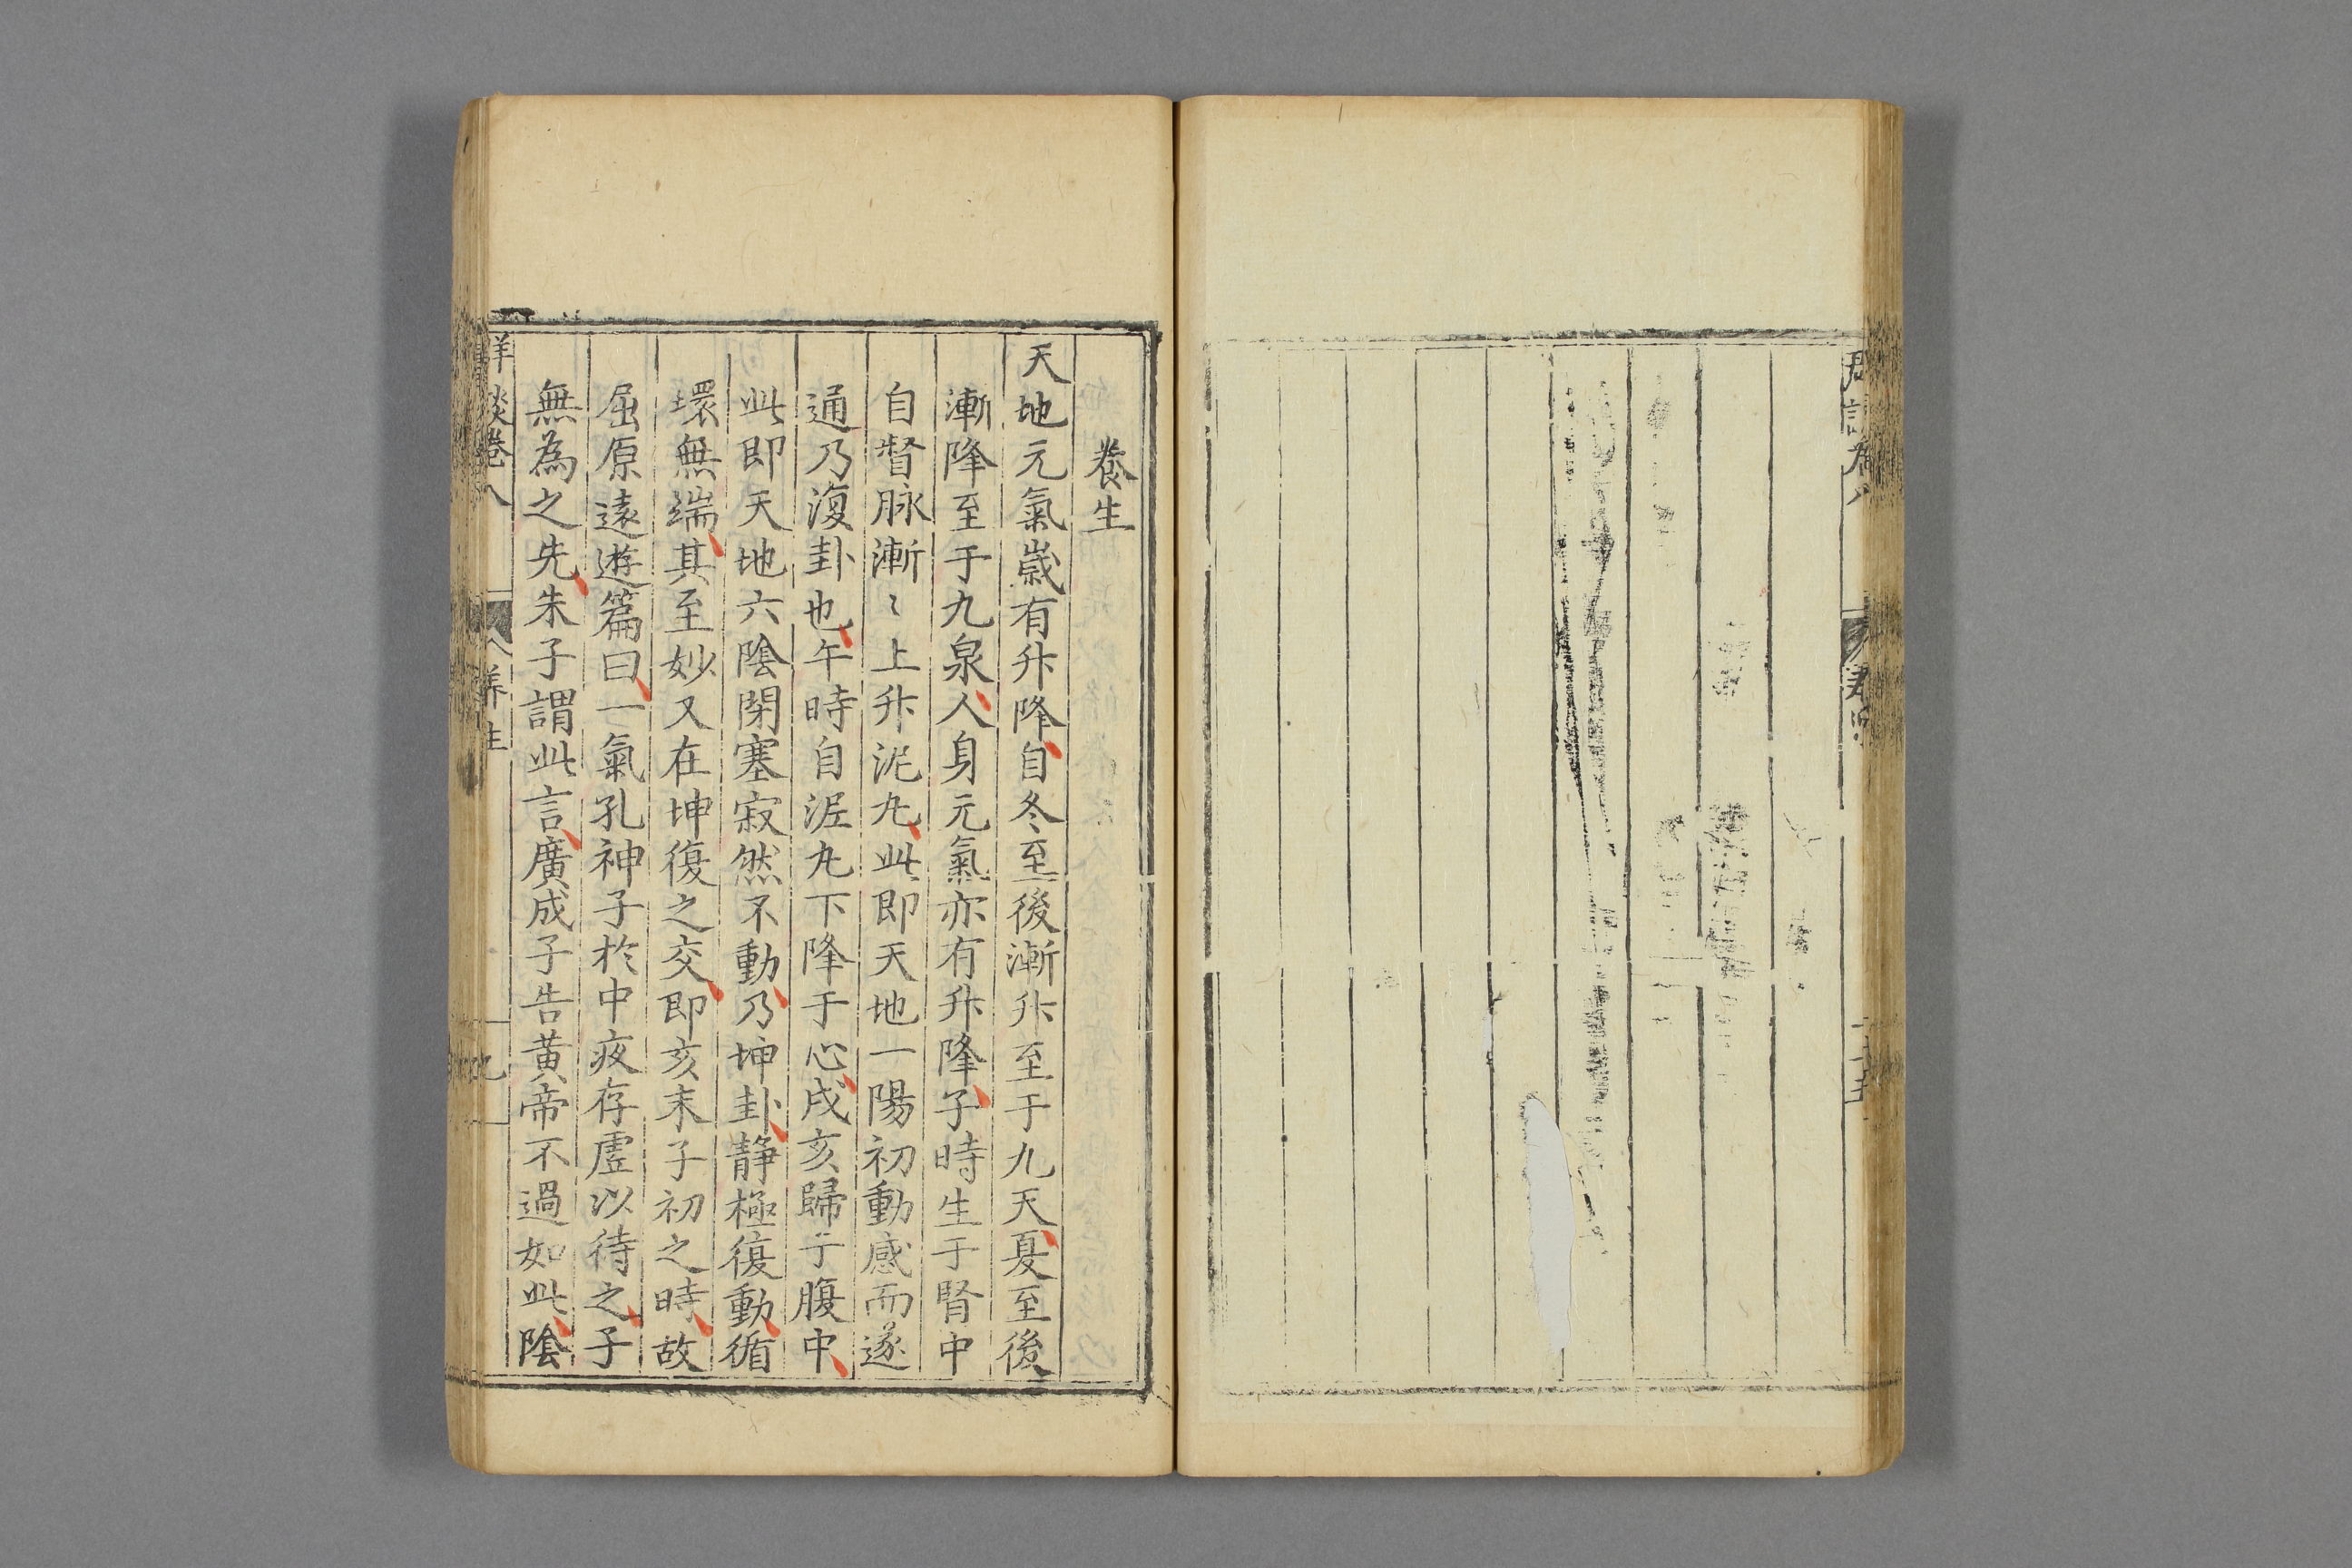 養生
天地元氣嵗有升降自冬至後漸升至于九天夏至後
漸降至于九泉人身元氣亦有升降子時生于腎中
自督脉漸〻上升泥丸此即天地一陽初動感而遂
通乃復卦也午時自泥丸下降于心戌亥歸于腹中
此即天地六陰閉塞寂然不動乃坤卦静極復動循
環無端其至妙又在坤復之交即亥末子初之時故
屈原遠遊篇曰一氣孔神子於中夜存虛以待之子
無為之先朱子謂此言廣成子告黃帝不過如此陰
卷八
養生